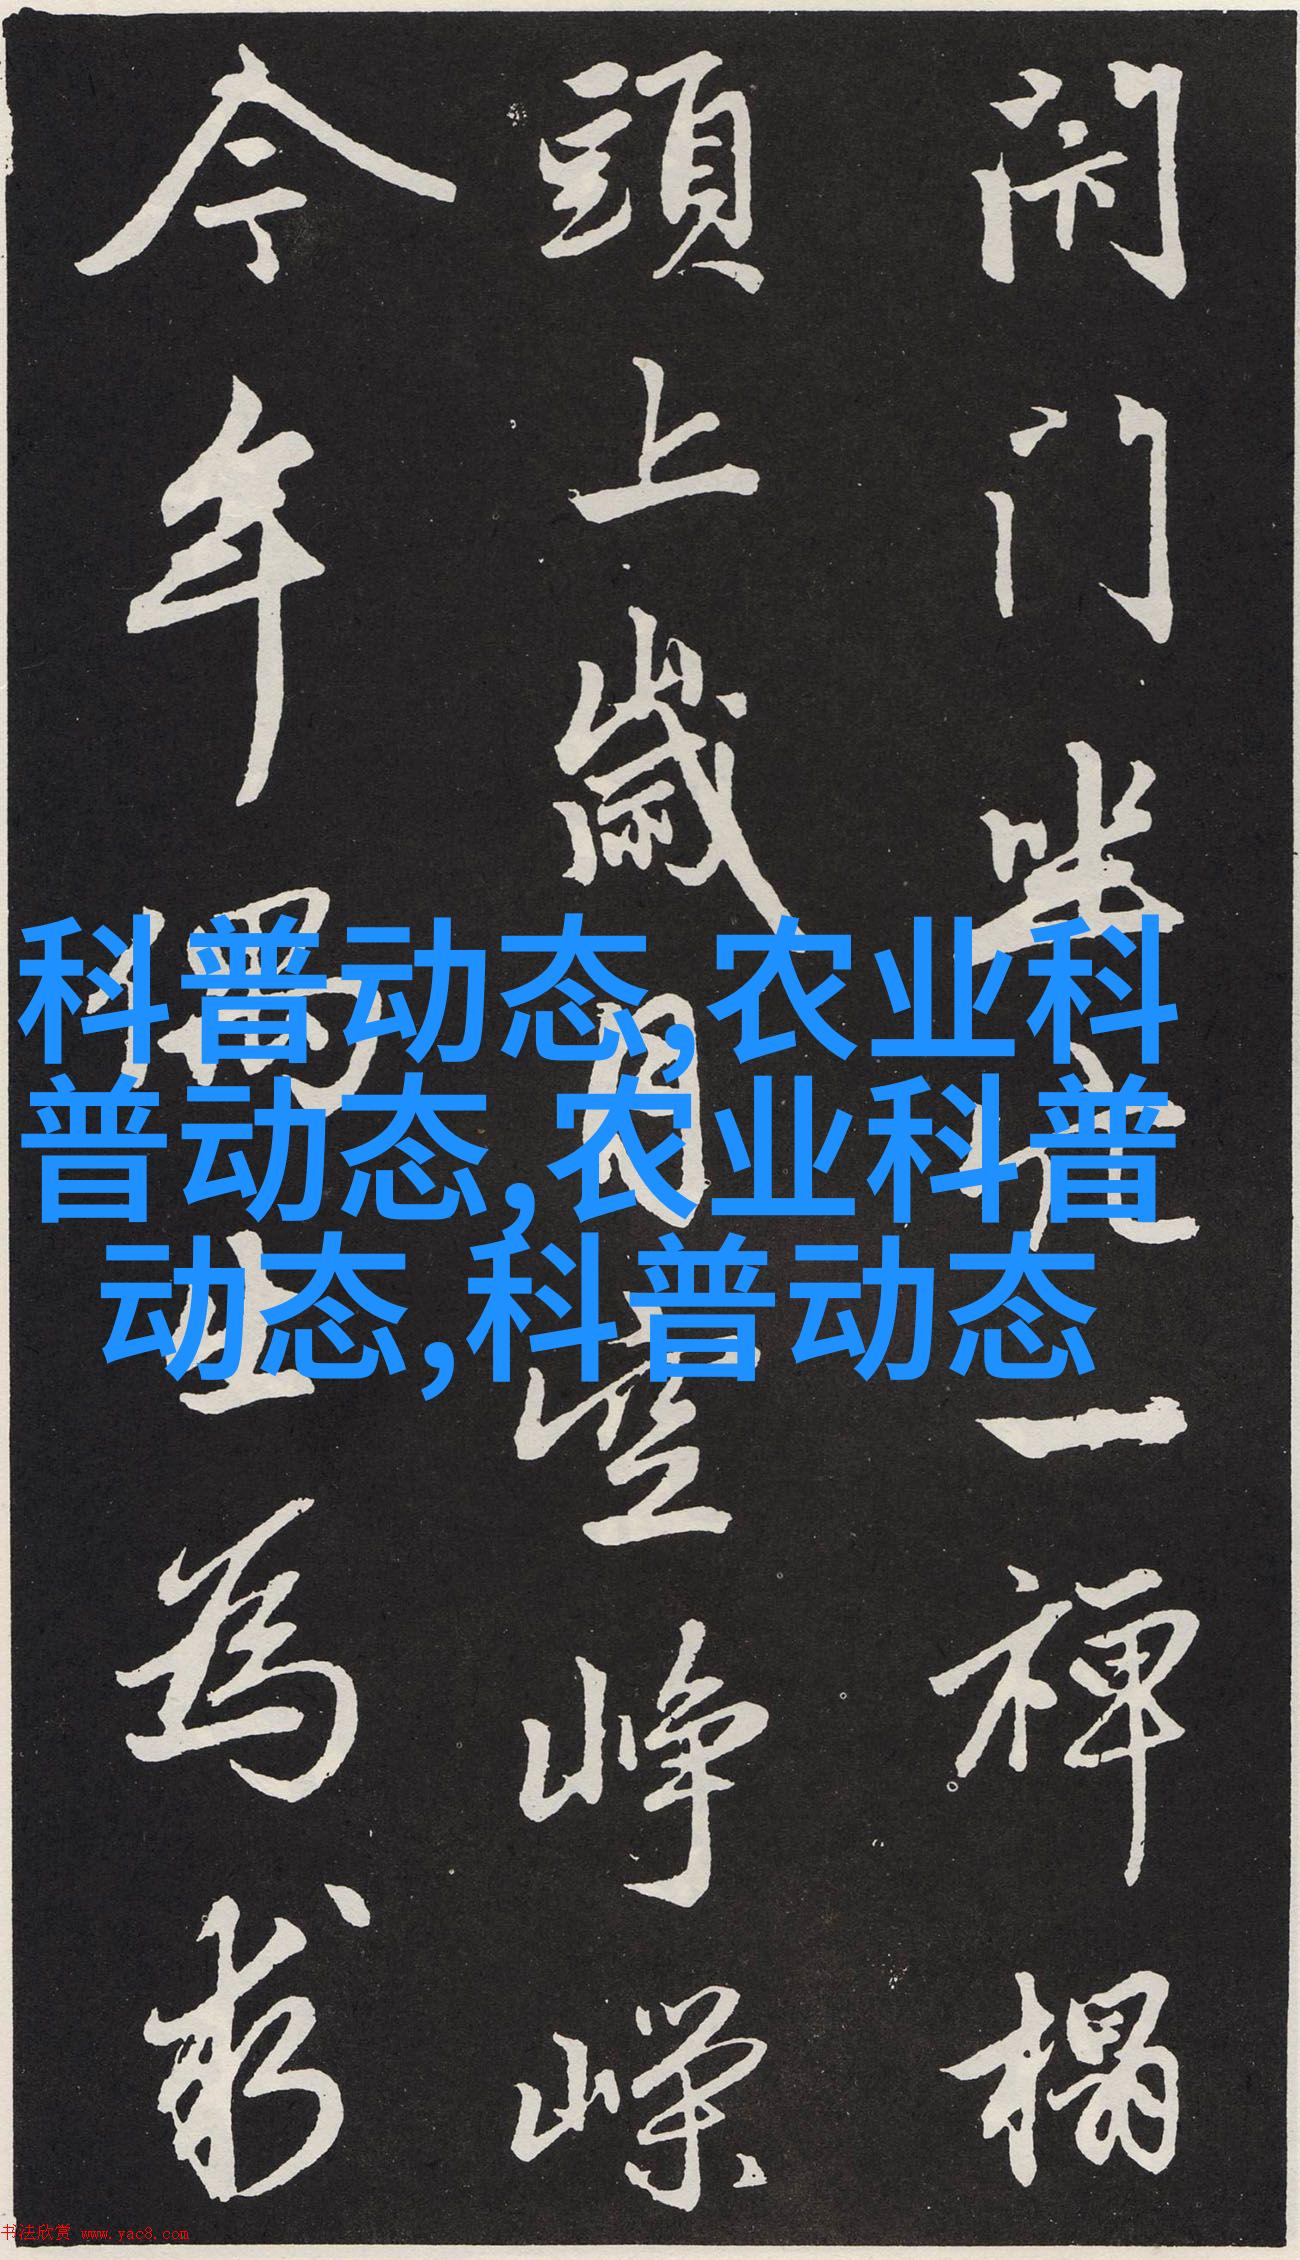 閉門坐穴一禪榻
頭上歲月空崢嶸
今年偶出為求
科普动态,农业科
普动态,农业科普
动态,科普动态
书法欣赏 www.yac8.com